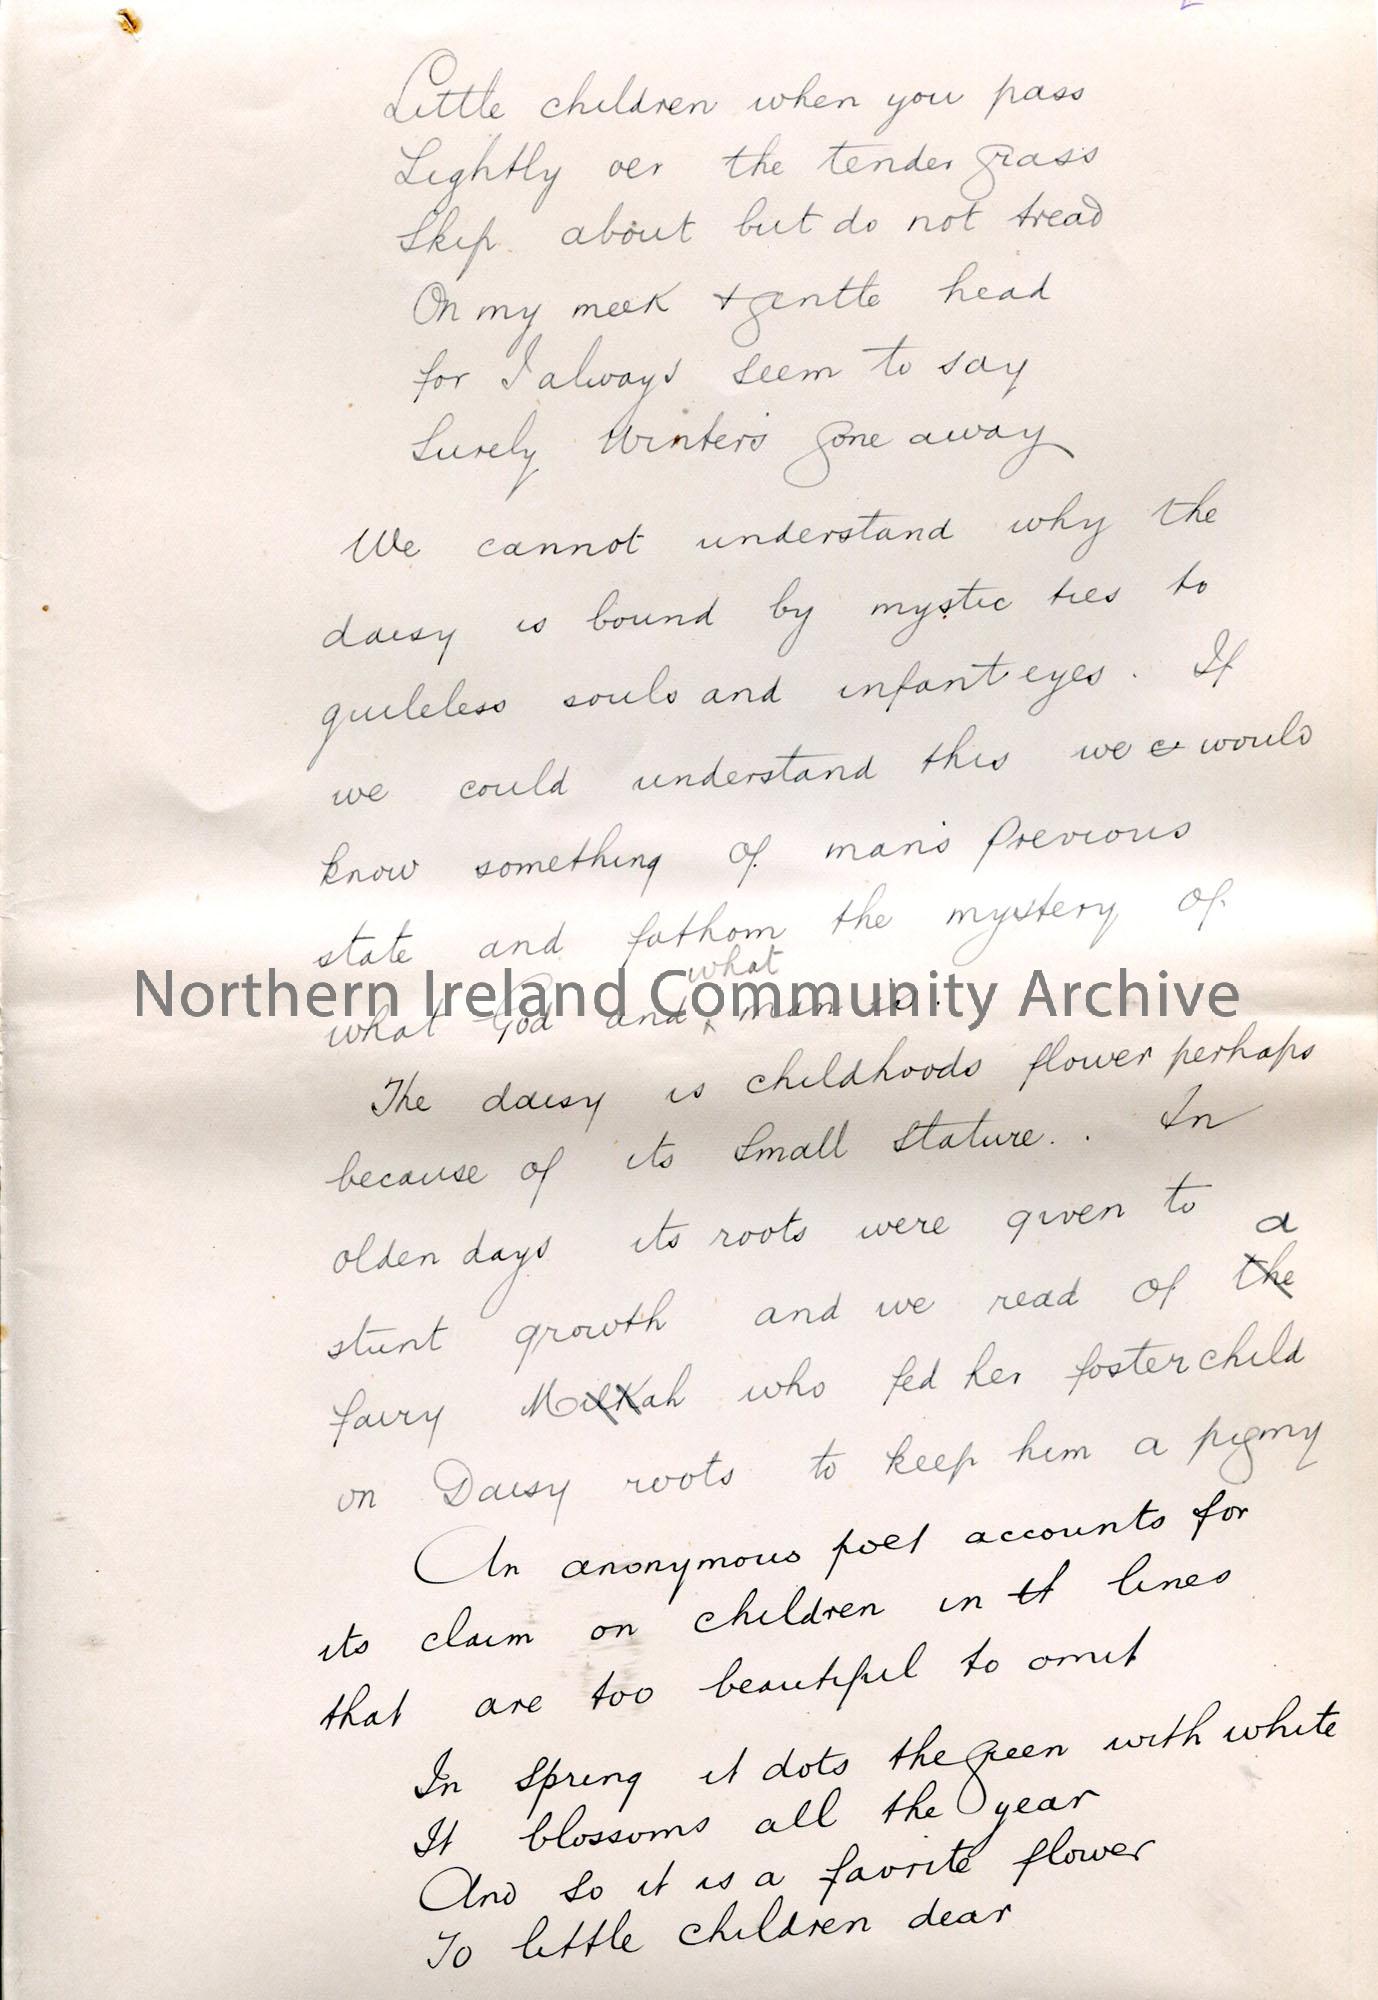 Little children when you pass
Lightly oer the tender grass
Skip about but do not tread
On my meek + gentle head
for I always seem to say
Surely Winter's gone away
We cannot understand why the
daisy is bound by mystic ties to
guileless souls and infant eyes. If
we could understand this we would
know something of man's previous
state and fathom the mystery of
what God and what man is.
Northern Ireland Community Archive
The daisy is childhoods flower perhaps
because of its small stature. . In
olden days its roots were given to
stunt growth and we read of the a
fairy Milkah who fed her foster child
on Daisy roots to keep him a pigmy
An anonymous poet accounts for
its claim on children in lines
that are too beautiful to omit
In spring it dots the green with white
It blossoms all the year
And so it is a favorite flower
To little children dear